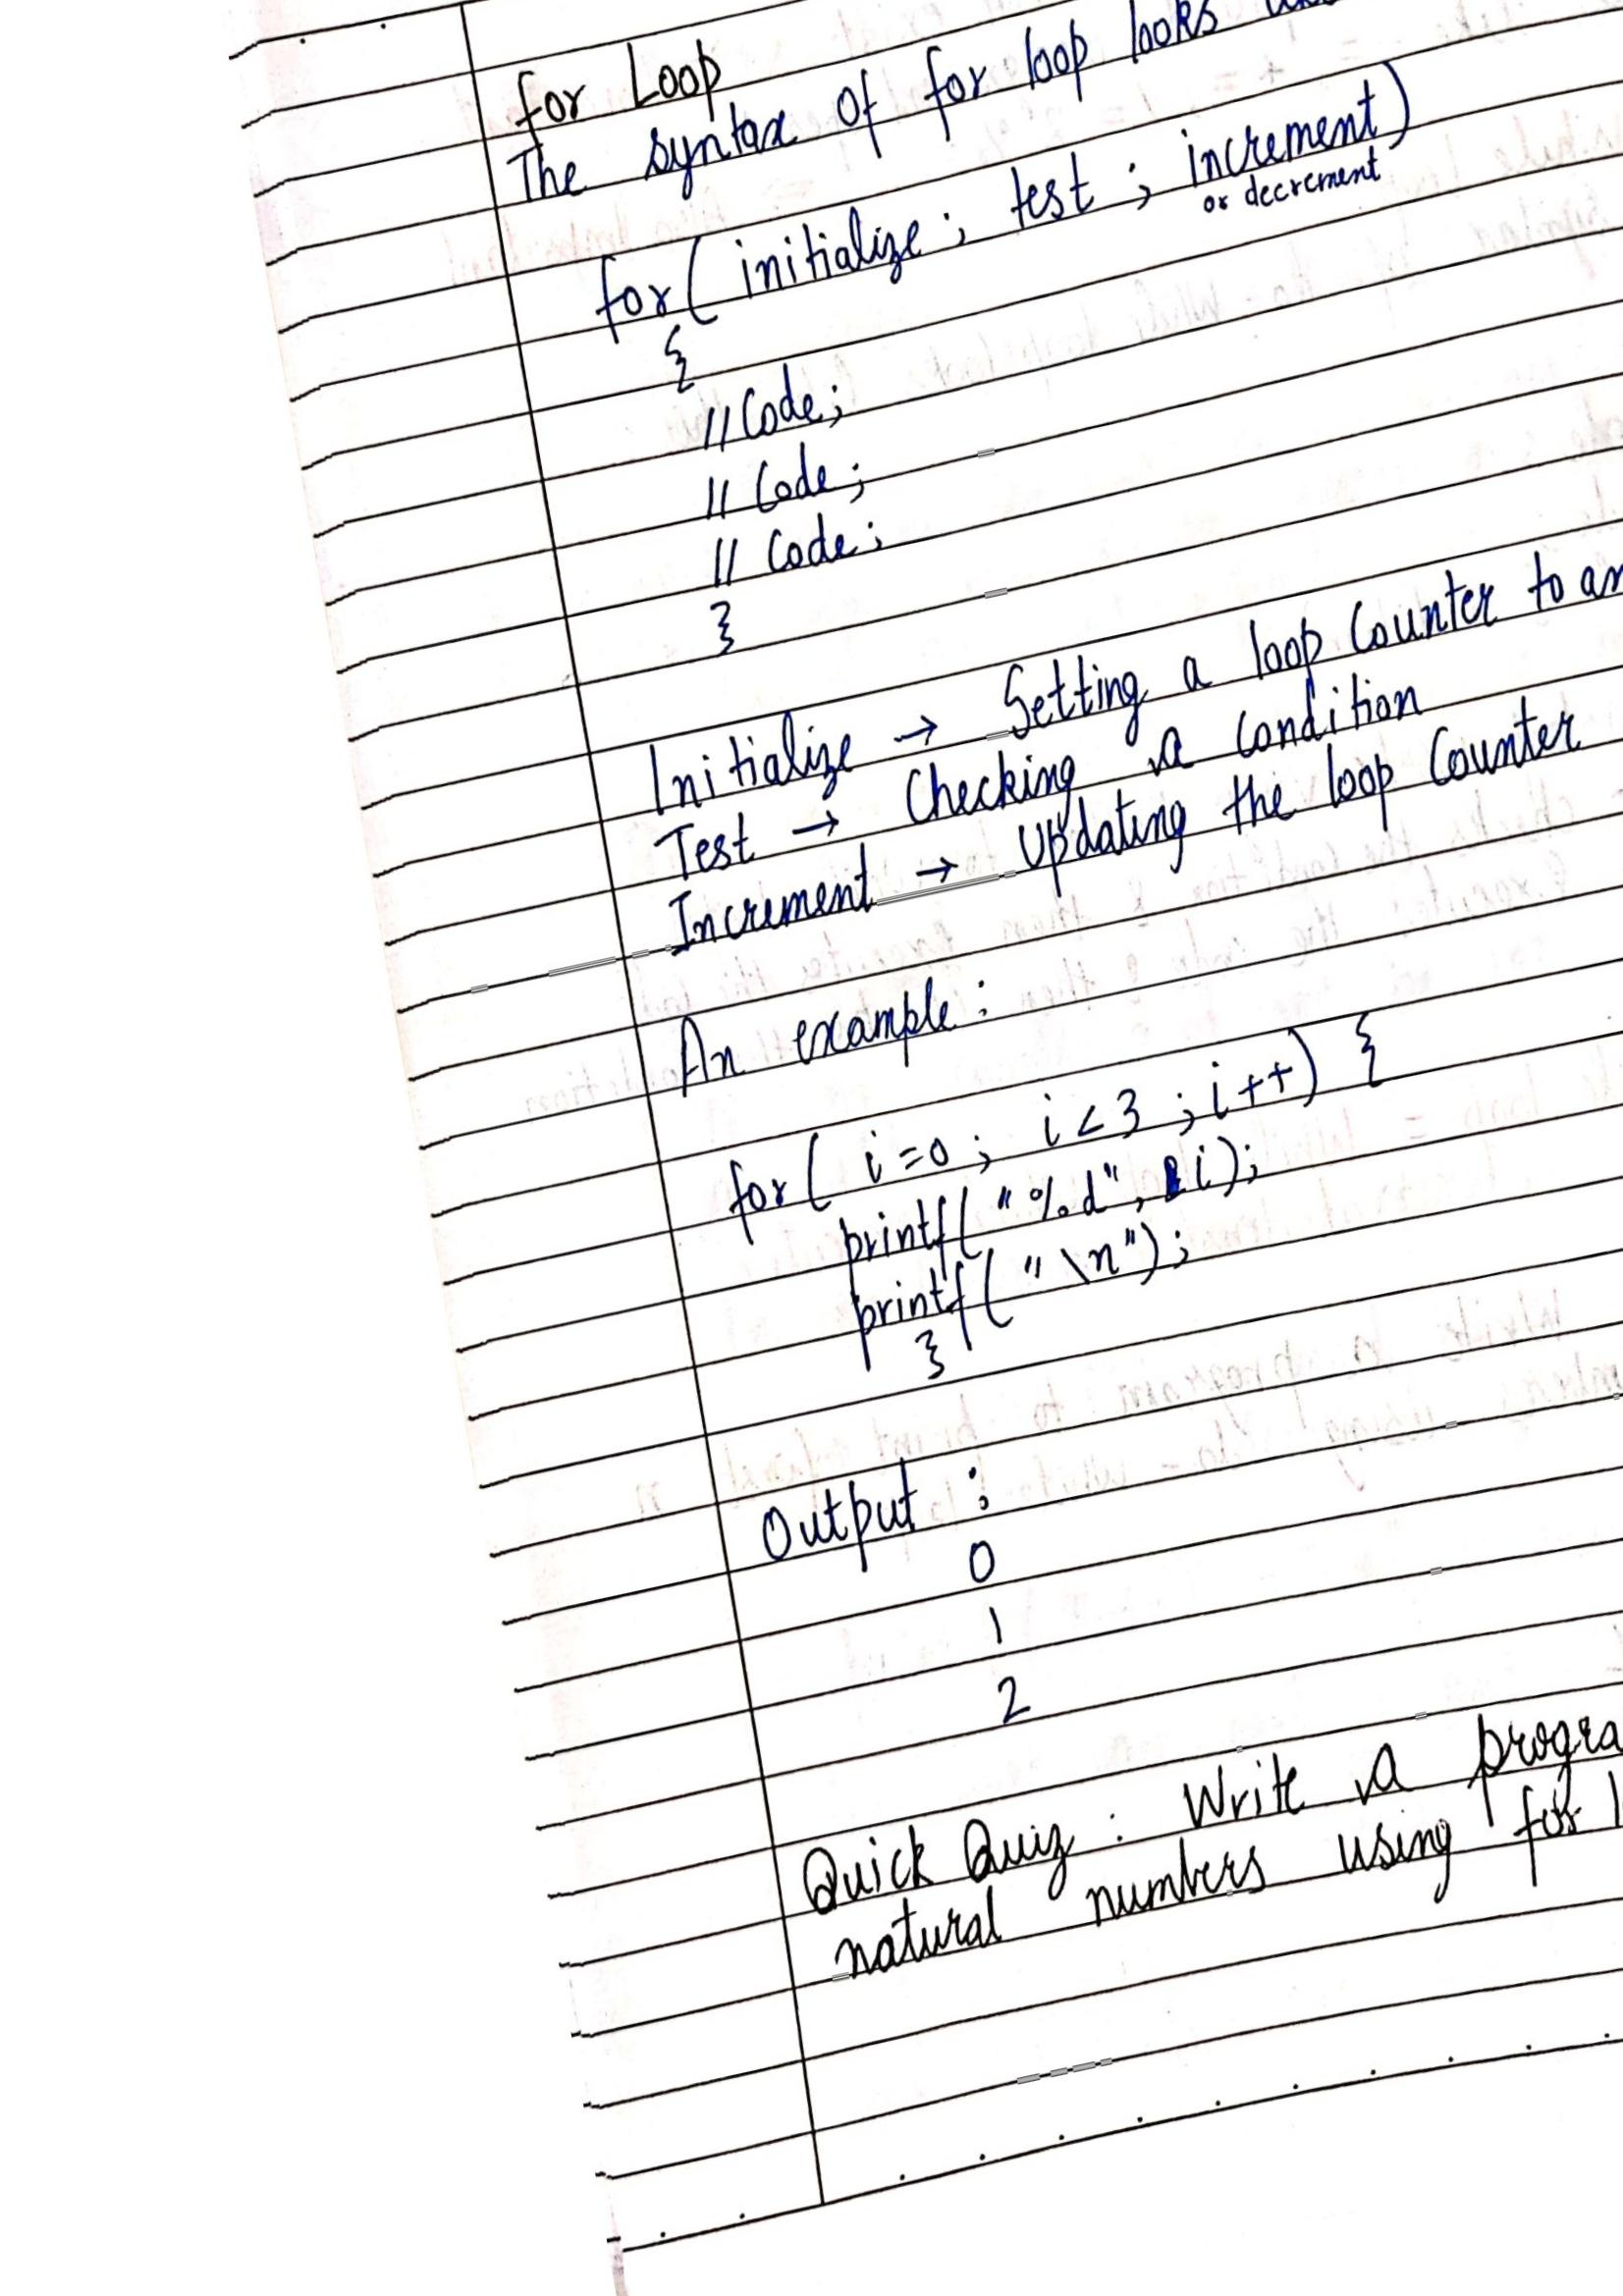 for Loop
The syntax of for loop looks
for( initialize ; test ; increment)
or decrement
{
//Code;
// Code;
// Code;
}
Initialize → Setting a loop Counter to an
Test → Checking a condition
Increment → Updating the loop Counter
An example :
for( i=0 ; i<3 ; i++) {
printf( "%d", i);
printf( "\n");
}
Output :
0
1
2
Quick Quiz : Write a progra
natural numbers using for l